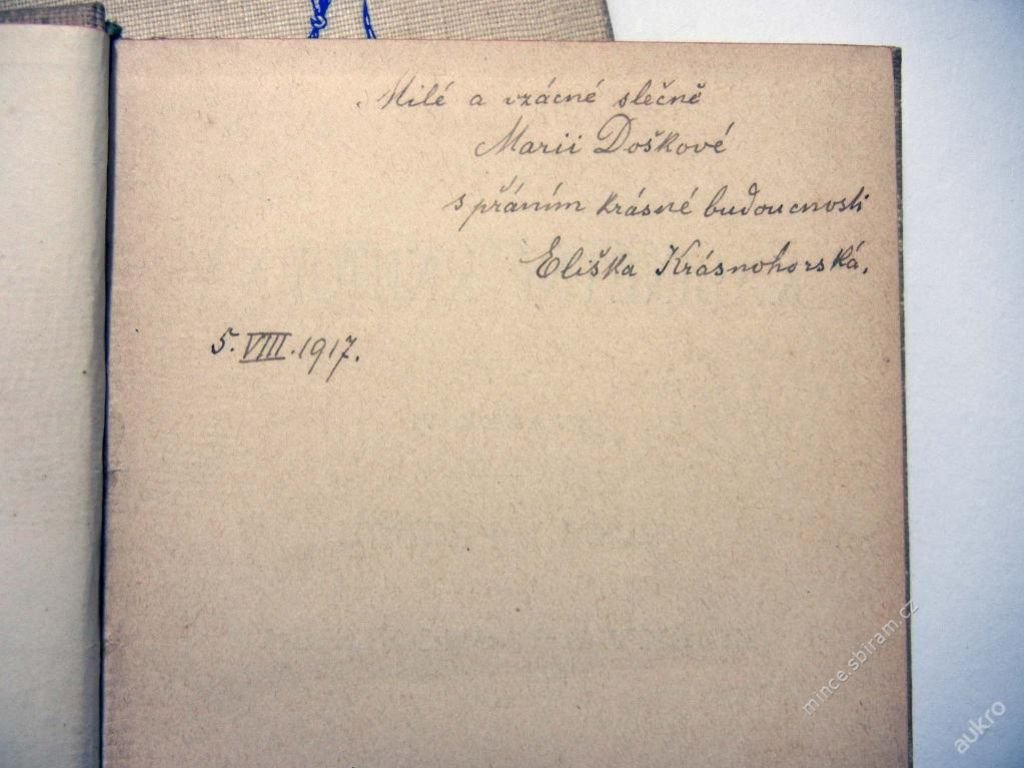 Milé a vzácné slečně
Marii Doškové
s přáním krásné budoucnosti
Eliška Krásnohorská.
5. VIII. 1917.
mince.sbiram.cz
aukro